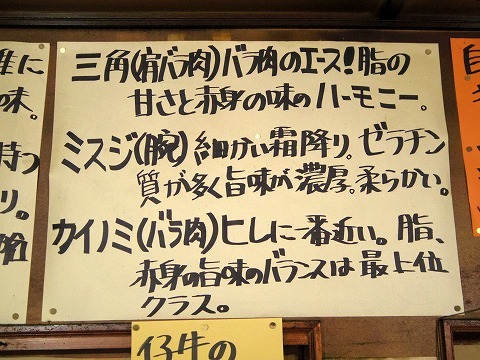 三角(肩バラ肉)バラ肉のエース!脂の
甘さと赤身の味のハーモニー。
ミスジ(腕)細かい霜降り。ゼラチン
質が多く旨味が濃厚。柔らかい。
カイノミ(バラ肉)ヒレに一番近い。脂、
赤身の旨味のバランスは最上位
クラス。
仔牛の
に
味。
持つ
り。